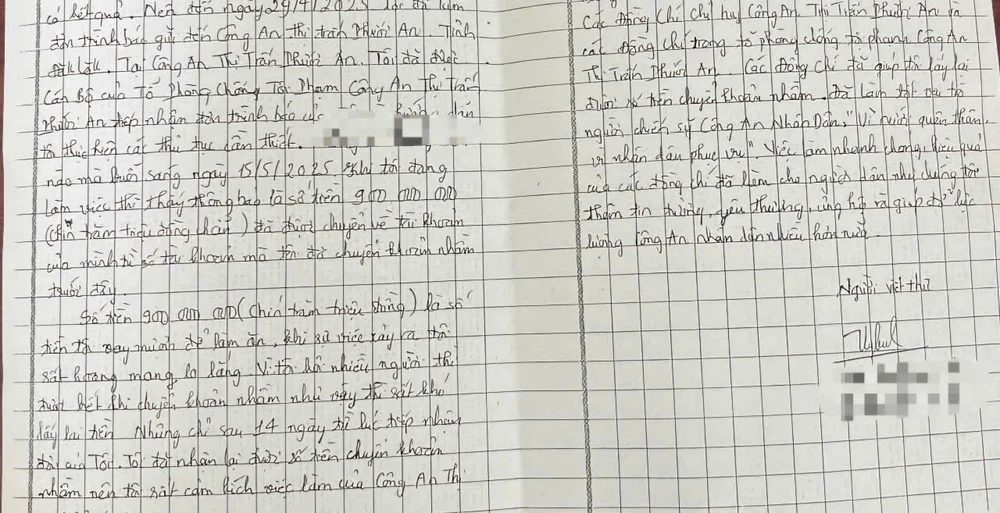 có kết quả. Nên đến ngày 29/4/2025 tôi đã làm
đơn trình báo gửi đến Công An Thị trấn Phước An. Tỉnh
Đắk Lắk. Tại Công An Thị Trấn Phước An. Tôi đã được
Cán Bộ của Tổ Phòng Chống Tội Phạm Công An Thị Trấn
Phước An tiếp nhận đơn trình báo của hướng dẫn
tôi thực hiện các thủ tục cần thiết.
nào mà buổi sáng ngày 15/5/2025 khi tôi đang
làm việc thì thấy thông báo là số tiền 900 000 000
(Chín trăm triệu đồng chẵn) đã được chuyển về tài khoản
của mình từ số tài khoản mà tôi đã chuyển khoản nhầm
trước đây.
Số tiền 900 000 000 (Chín trăm triệu đồng) là số
tiền tôi vay mượn để làm ăn, khi sự việc xảy ra tôi
rất hoang mang lo lắng vì tôi hỏi nhiều người thì
được biết khi chuyển khoản nhầm như vậy thì rất khó
lấy lại tiền Nhưng chỉ sau 14 ngày từ lúc tiếp nhận
đơn của Tôi. Tôi đã nhận lại được số tiền chuyển khoản
nhầm nên tôi rất cảm kích việc làm của Công An Thị
Các Đồng Chí chỉ huy Công An Thị Trấn Phước An và
các đồng chí trong tổ phòng chống tội phạm Công An
Thị Trấn Phước An. Các Đồng Chí đã giúp tôi lấy lại
được số tiền chuyển khoản nhầm. Đã làm tốt vai trò
người chiến sỹ Công An Nhân Dân, "Vì nước quên thân,
vì nhân dân phục vụ". Việc làm nhanh chóng, hiệu quả
của các đồng chí đã làm cho người dân như chúng tôi
thêm tin tưởng, yêu thương, ủng hộ và giúp đỡ lực
lượng Công An nhân dân nhiều hơn nữa.
Người viết thư